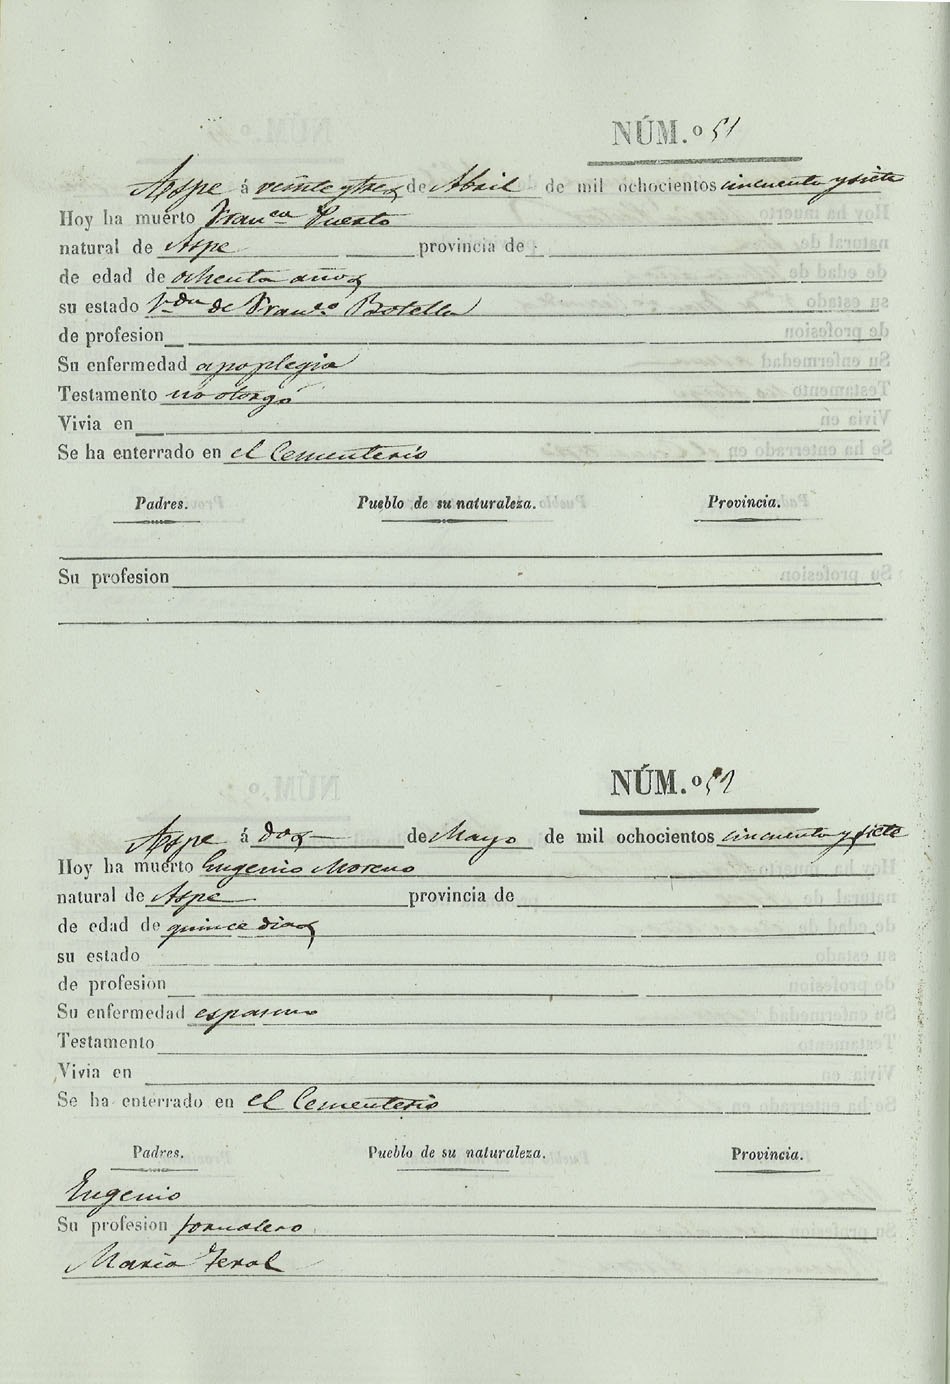 NÚM.º 51
Aspe á veinte y tres de Abril de mil ochocientos cincuenta y siete
Hoy ha muerto Franca Puerto
natural de Aspe provincia de
de edad de ochenta años
su estado Vda de Franco Botella
de profesion
Su enfermedad apoplegia
Testamento no otorgó
Vivia en
Se ha enterrado en el Cementerio
Padres. Pueblo de su naturaleza. Provincia.
Su profesion
NÚM.º 52
Aspe á dos de Mayo de mil ochocientos cincuenta y siete
Hoy ha muerto Eugenio Moreno
natural de Aspe provincia de
de edad de quince dias
su estado
de profesion
Su enfermedad espasmo
Testamento
Vivia en
Se ha enterrado en el Cementerio
Padres. Pueblo de su naturaleza. Provincia.
Eugenio
Su profesion jornalero
Maria Terol